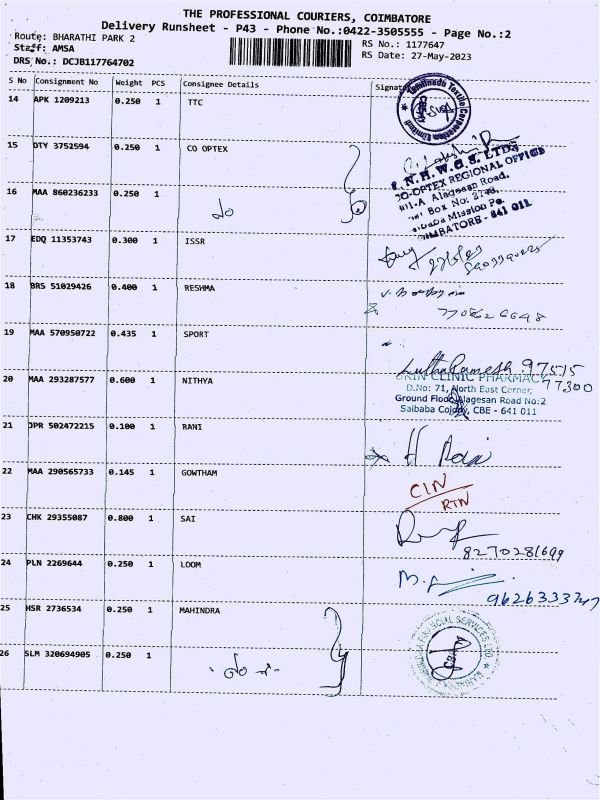 THE PROFESSIONAL COURIERS, COIMBATORE
Delivery Runsheet - P43 - Phone No.:0422-3505555 - Page No.:2
Route: BHARATHI PARK 2
RS No.: 1177647
Staff: AMSA
RS Date: 27-May-2023
DRS No.: DCJB117764702
S No Consignment No Weight PCS Consignee Details Signat
14 APK 1209213 0.250 1 TTC
Tamilnadu Textile Corporation Limited
15 DTY 3752594 0.250 1 CO OPTEX
.N.H.W.C.S. LTD.
O-OPTEX REGIONAL OFFICE
16 MAA 860236233 0.250 1
-A Alagesan Road,
Box No:
Mission Po.
MBATORE - 641 011
17 EDQ 11353743 0.300 1 ISSR
18 BRS 51029426 0.400 1 RESHMA
19 MAA 570950722 0.435 1 SPORT
Ramesh 97515
77300
20 MAA 293287577 0.600 1 NITHYA
SKIN CLINIC PHARMACY
D.No: 71, North East Corner,
Ground Floor, Alagesan Road No:2
Saibaba Colony, CBE - 641 011
21 JPR 502472215 0.100 1 RANI
H Rani
22 MAA 290565733 0.145 1 GOWTHAM
CIN
RTN
23 CHK 29355087 0.800 1 SAI
8270281699
24 PLN 2269644 0.250 1 LOOM
9626333747
25 HSR 2736534 0.250 1 MAHINDRA
FINANCIAL SERVICES LTD
26 SLM 320694905 0.250 1